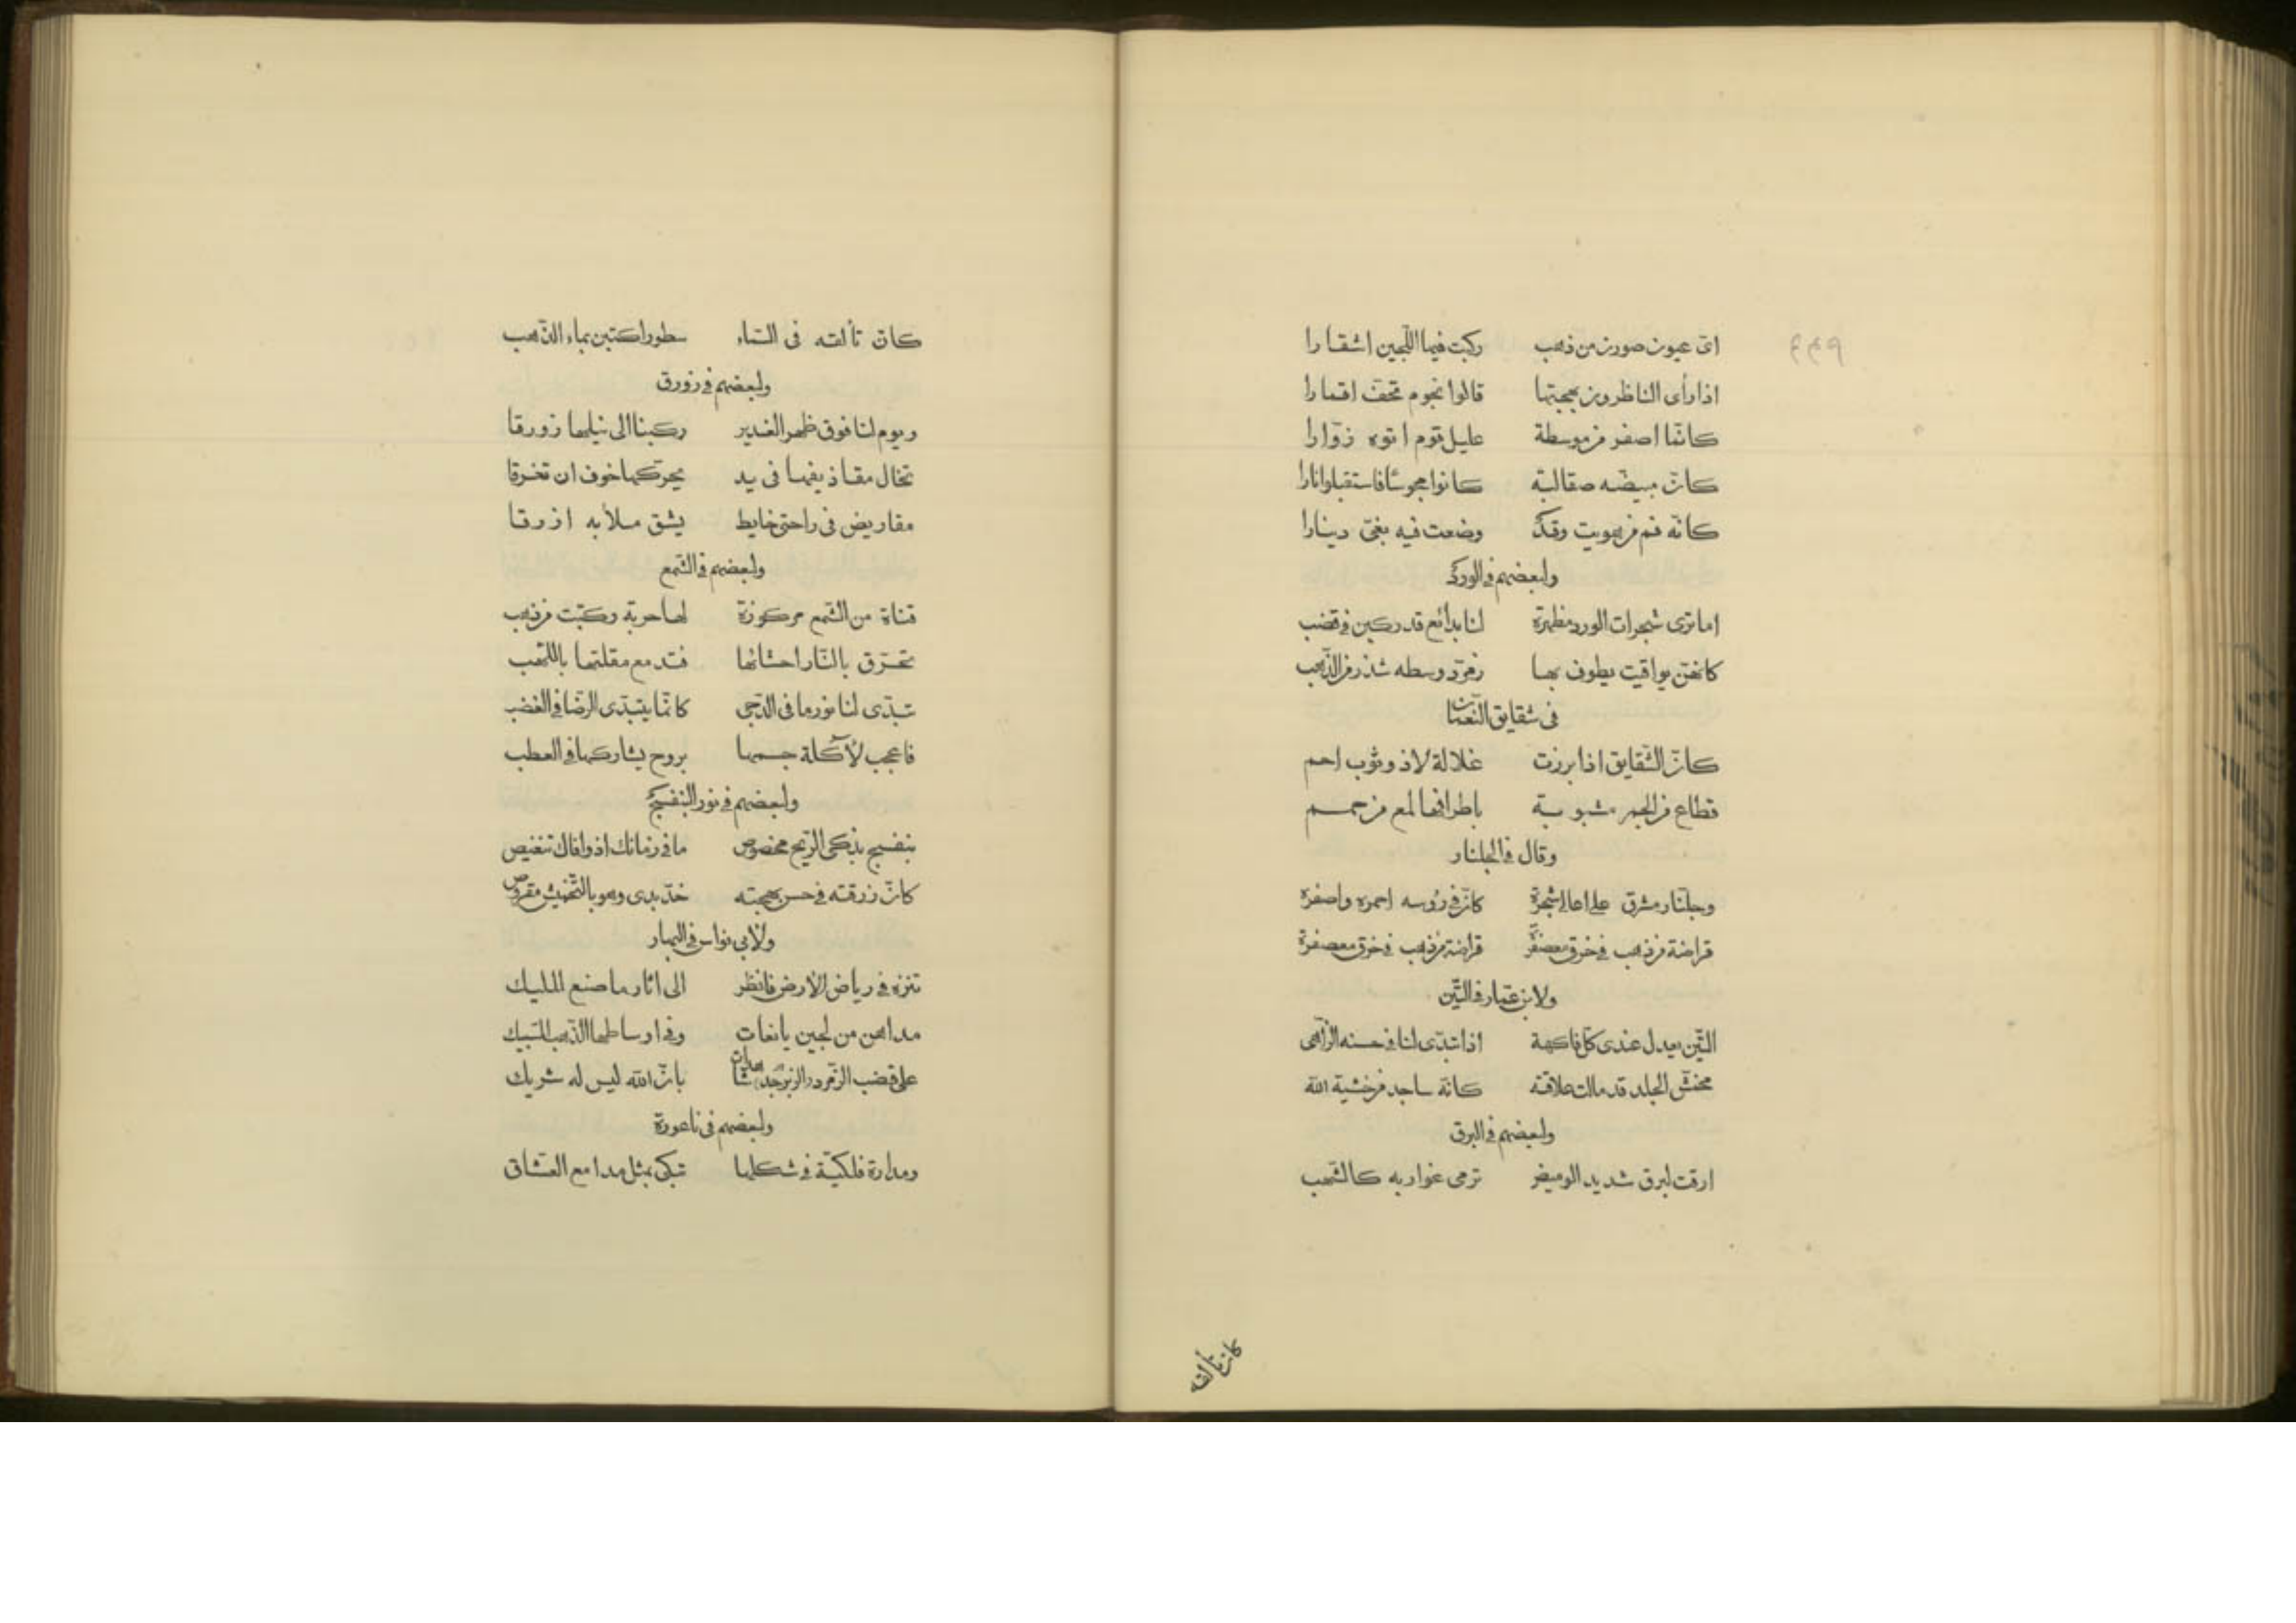 اى عيون صورن من ذهب ركبت فيها اللّجين اشفارا
اذا رأى الناظرون بهجتها قالوا نجوم تحفّ اقمارا
كانّما اصفر من وسطة عليل قوم اتوه زوّارا
كانّ مبيضّه صقالبة كانوا مجوسًا فاستقبلوا نارا
كانّه فم من هويت وقد وضعت فيه بفىّ دينارا
ولبعضهم فى الورد
اما ترى شجرات الورد مظهرة لنا بدائع قد ركبن فى قضب
كانهنّ يواقيت يطوف بها زمرّد وسطه شذر من الذّهب
فى شقايق النّعمان
كانّ الشّقايق اذا برزت غلالة لاذ وثوب احم
قطاع من الجمر مشبوبة باطرافها لمع من حمم
وقال فى الجلنار
وجلّنار مشرق على اعالى شجرة كانّ فى رؤسه احمره واصفره
قراضة من ذهب فى خرق معصفرة قراضة من ذهب فى خرق معصفرة
ولابن عمّار فى التّين
التّين يعدل عندى كلّ فاكهة اذا تبدّى لنا فى حسنه الزّاهى
مخمّش الجلد قد مالت علاقته كانّه ساجد من خشية الله
ولبعضهم فى البرق
ارقت لبرق شديد الوميض ترمى غواربه كالشّهب
كان تألقه
كان تألقه فى السّماء سطورا كتبن بماء الذّهب
ولبعضهم فى زورق
ويوم لنا فوق ظهر الغدير ركبنا الى نيلها زورقا
تخال مقاذيفها فى يد يحرّكها خوف ان تغرقا
مقاريض فى راحتى خايط يشق ملأبه ازرقا
ولبعضهم فى الشّمع
قناة من الشّمع مركوزة لها حربة ركّبت من ذهب
تحرّق بالنّار احشائها فتدمع مقلتها باللّهب
تبدّى لنا نورها فى الدّجى كانّما يتبدّى الرّضا فى الغضب
فاعجب لآكلة جسمها بروح يشاركها فى العطب
ولبعضهم فى نور البنفسج
بنفسج بذكى الريح مخصوص ما فى زمانك اذ وافاك تنغيص
كانّ زرقته فى حسن بهجته خدّ بدى وهو بالتّخميش مقروص
ولأبى نواس فى البهار
تنزه فى رياض الارض فانظر الى اثار ما صنع المليك
مداهن من لجين يانعات وفى اوساطها الذّهب السّبيك
على قضب الزّمرد والزبرجد شاهدات بانّ الله ليس له شريك
ولبعضهم فى ناعورة
ومدارة فلكيّة فى شكلها تبكى بمثل مدامع العشّاق